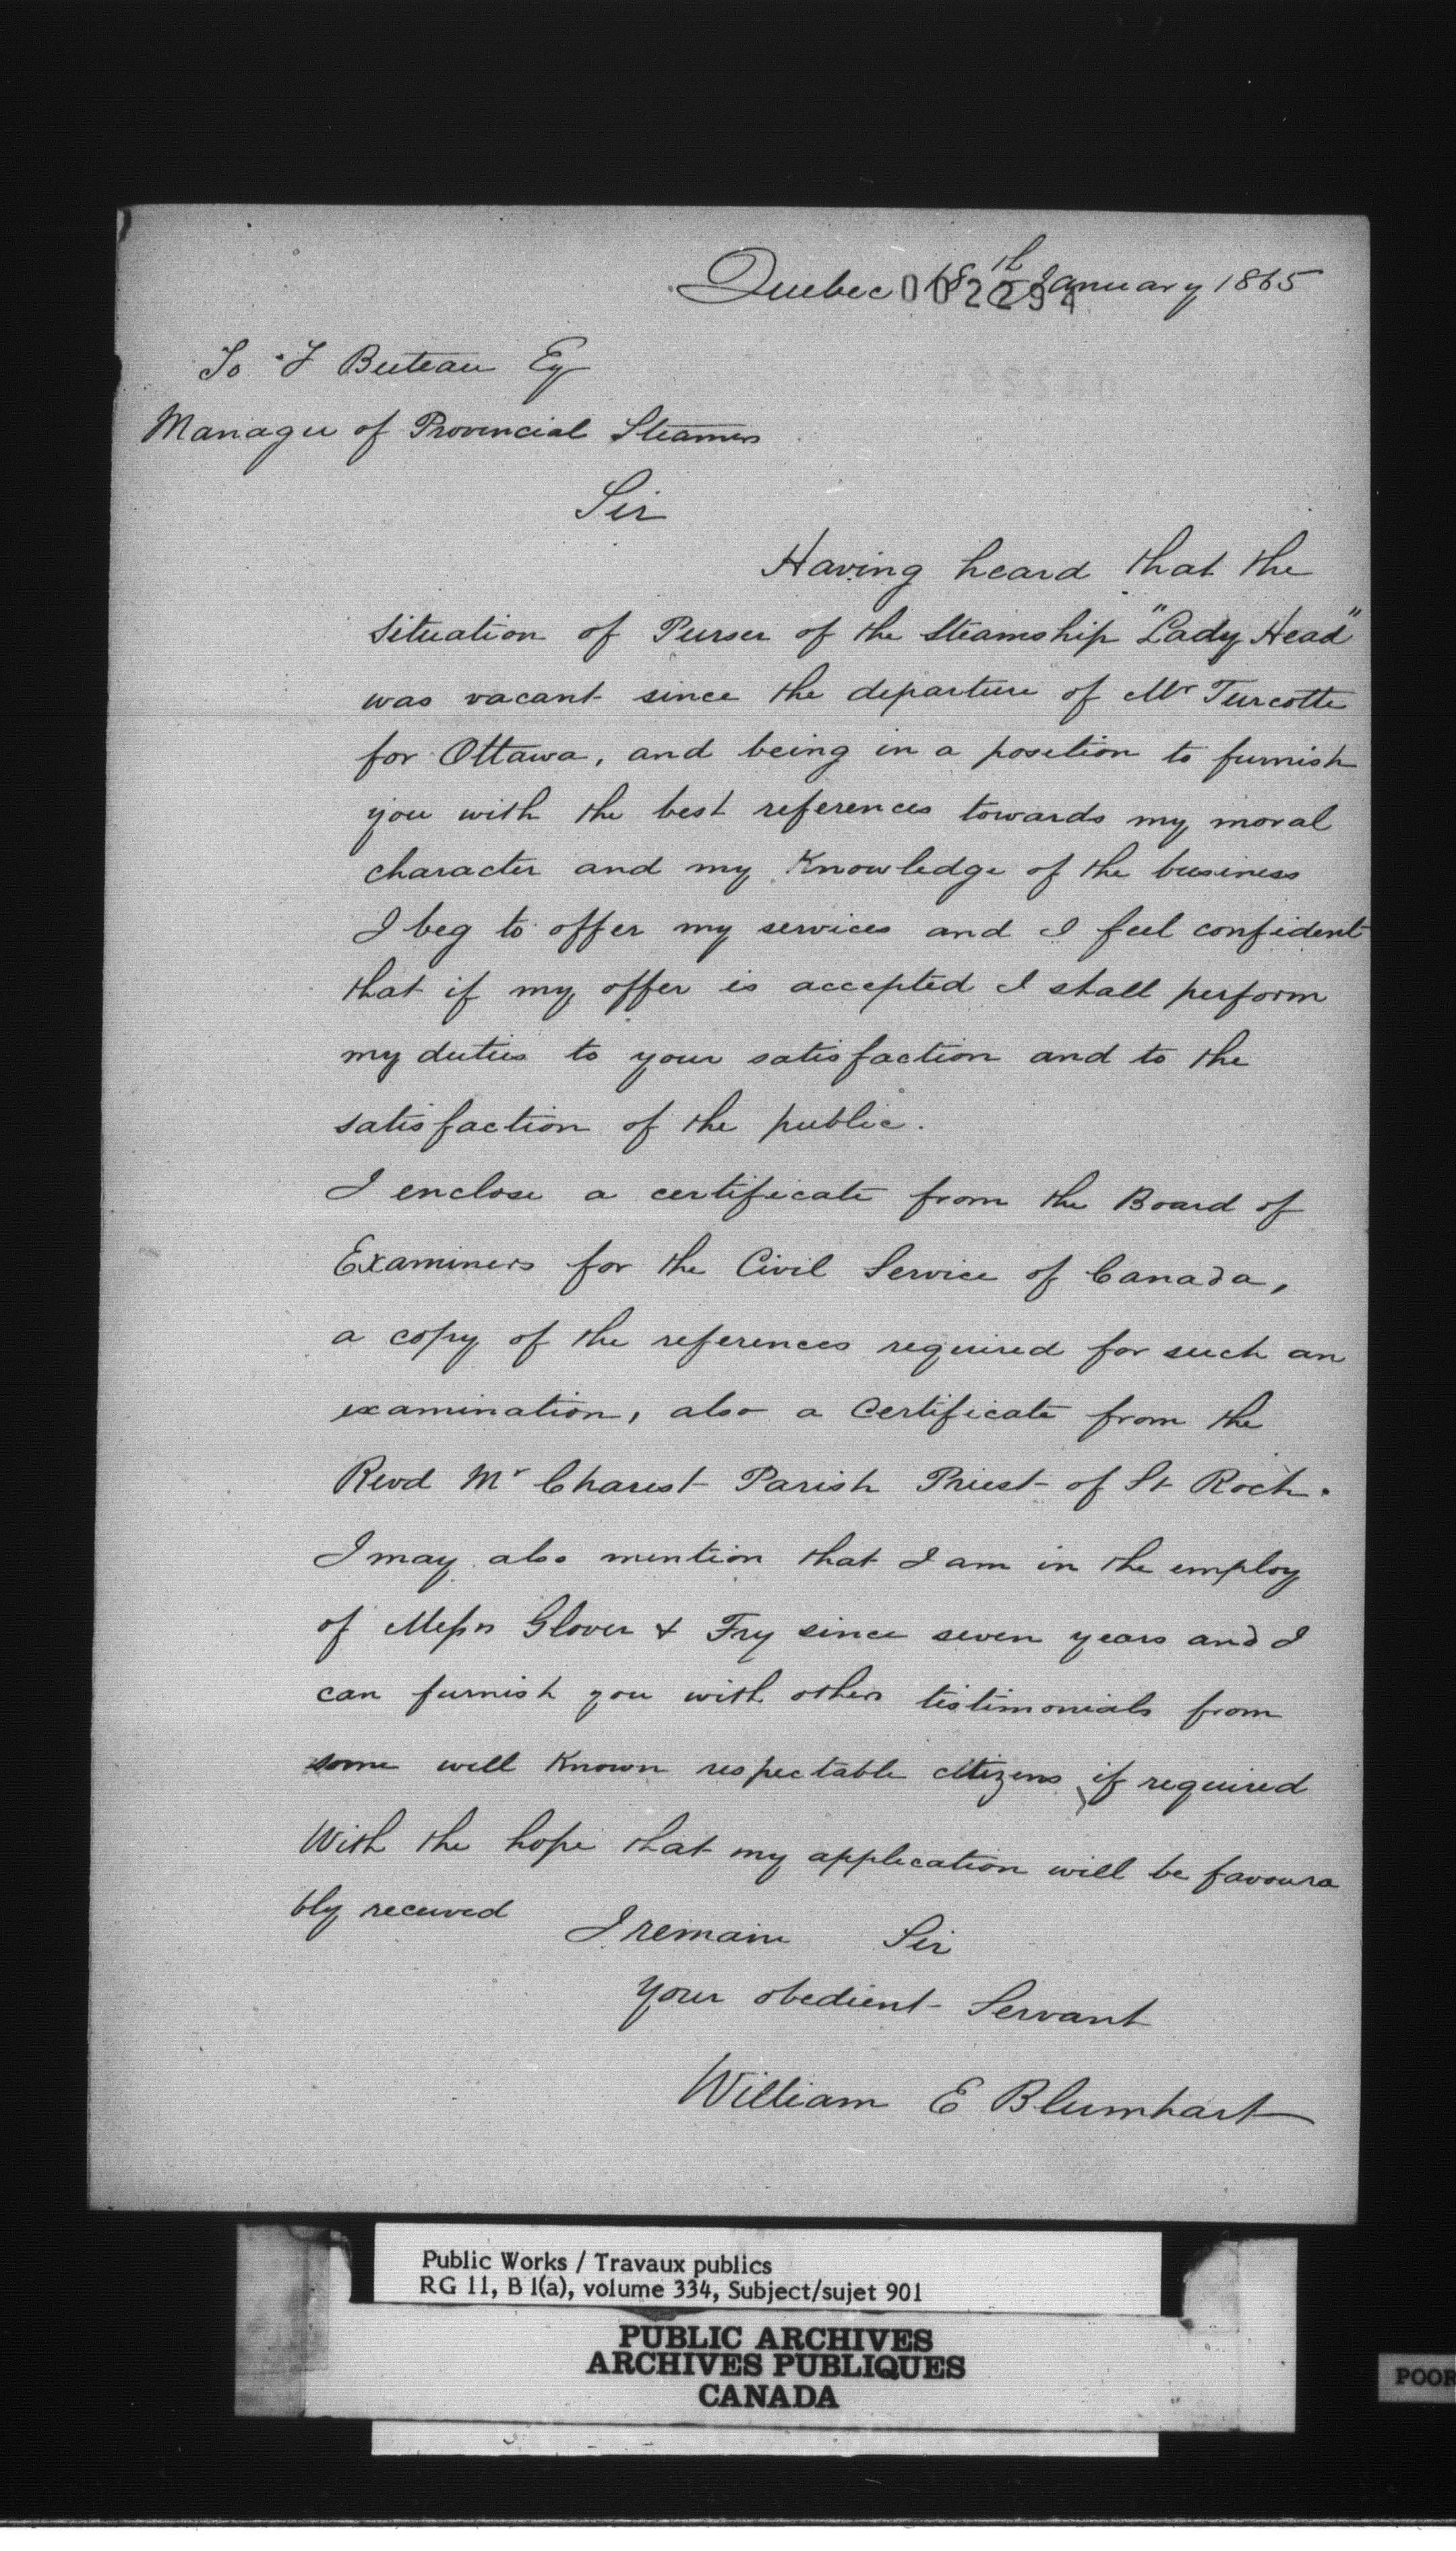 Quebec 18th January 1865
002294
To F Buteau Esq
Manager of Provincial Steamers
Sir
Having heard that the
situation of Purser of the Steamship "Lady Head"
was vacant since the departure of Mr Turcotte
for Ottawa, and being in a position to furnish
you with the best references towards my moral
character and my Knowledge of the business
I beg to offer my services and I feel confident
that if my offer is accepted I shall perform
my duties to your satisfaction and to the
satisfaction of the public.
I enclose a certificate from the Board of
Examiners for the Civil Service of Canada,
a copy of the references required for such an
examination, also a Certificate from the
Revd Mr Charest Parish Priest of St Roch.
I may also mention that I am in the employ
of Messrs Glover & Fry since seven years and I
can furnish you with others testimonials from
some well Known respectable citizens, if required
With the hope that my application will be favoura
bly received I remain Sir
your obedient Servant
William E Blumhart
Public Works / Travaux publics
RG 11, B 1(a), volume 334, Subject/sujet 901
PUBLIC ARCHIVES
ARCHIVES PUBLIQUES
CANADA
POOR